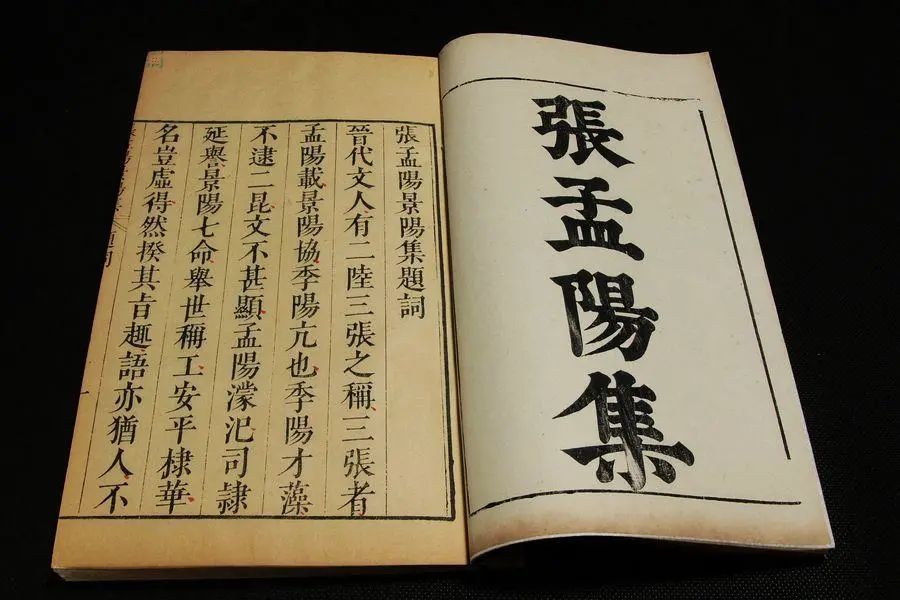 張孟陽集
張孟陽景陽集題詞
晉代文人有二陸三張之稱三張者
孟陽載景陽協季陽亢也季陽才藻
不逮二昆文不甚顯孟陽濛汜司隸
延譽景陽七命舉世稱工安平棣華
名豈虛得然揆其旨趣語亦猶人不